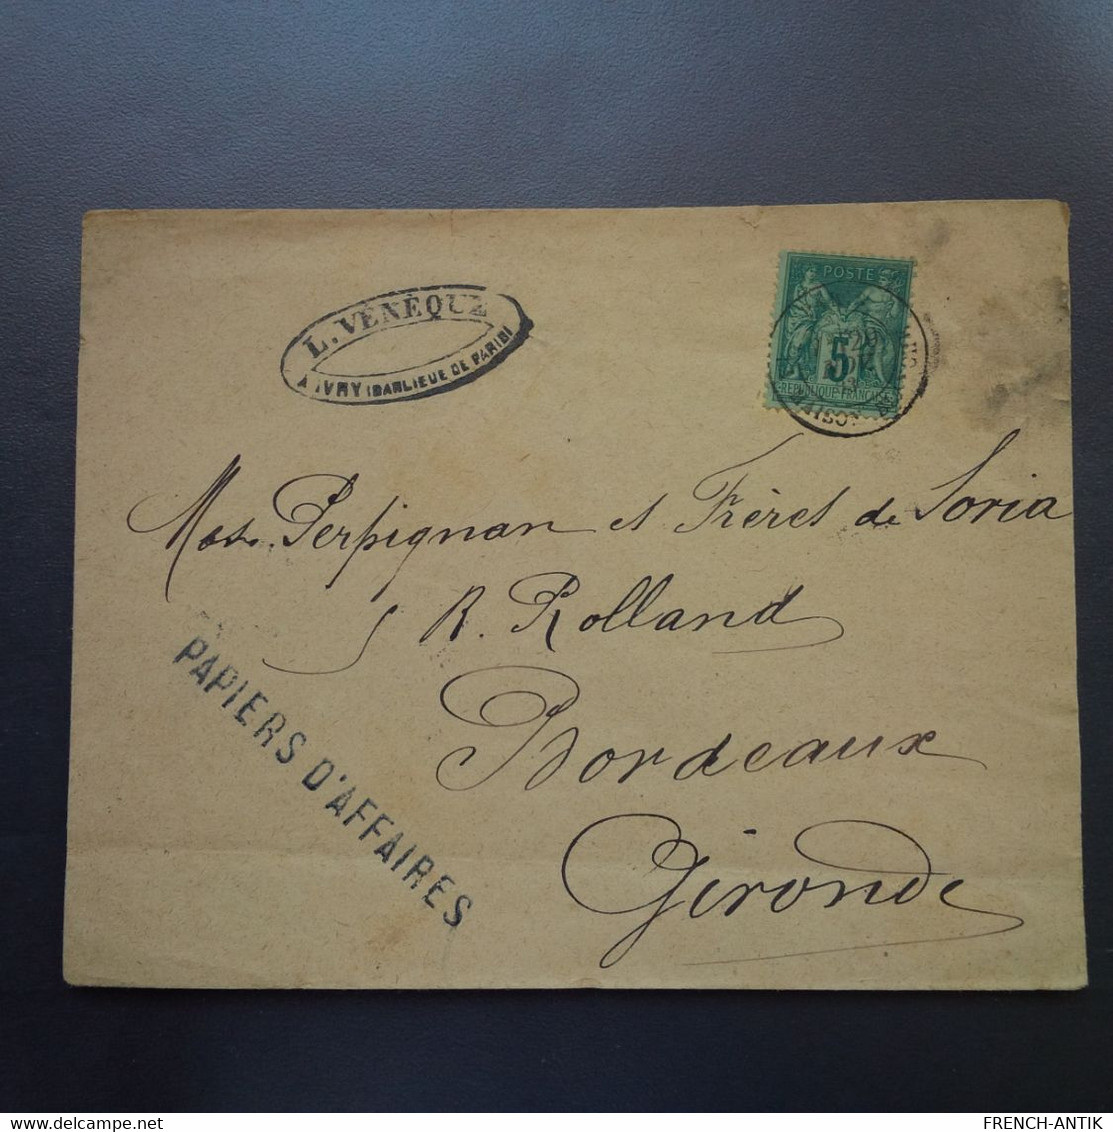 L. VÉNÈQUE
A IVRY (BANLIEUE DE PARIS)
POSTE
5
REPUBLIQUE FRANCAISE
Perpignan et Frères de Soria
5 R. Rolland
Bordeaux
Gironde
PAPIERS D'AFFAIRES
FRENCH-ANTIK